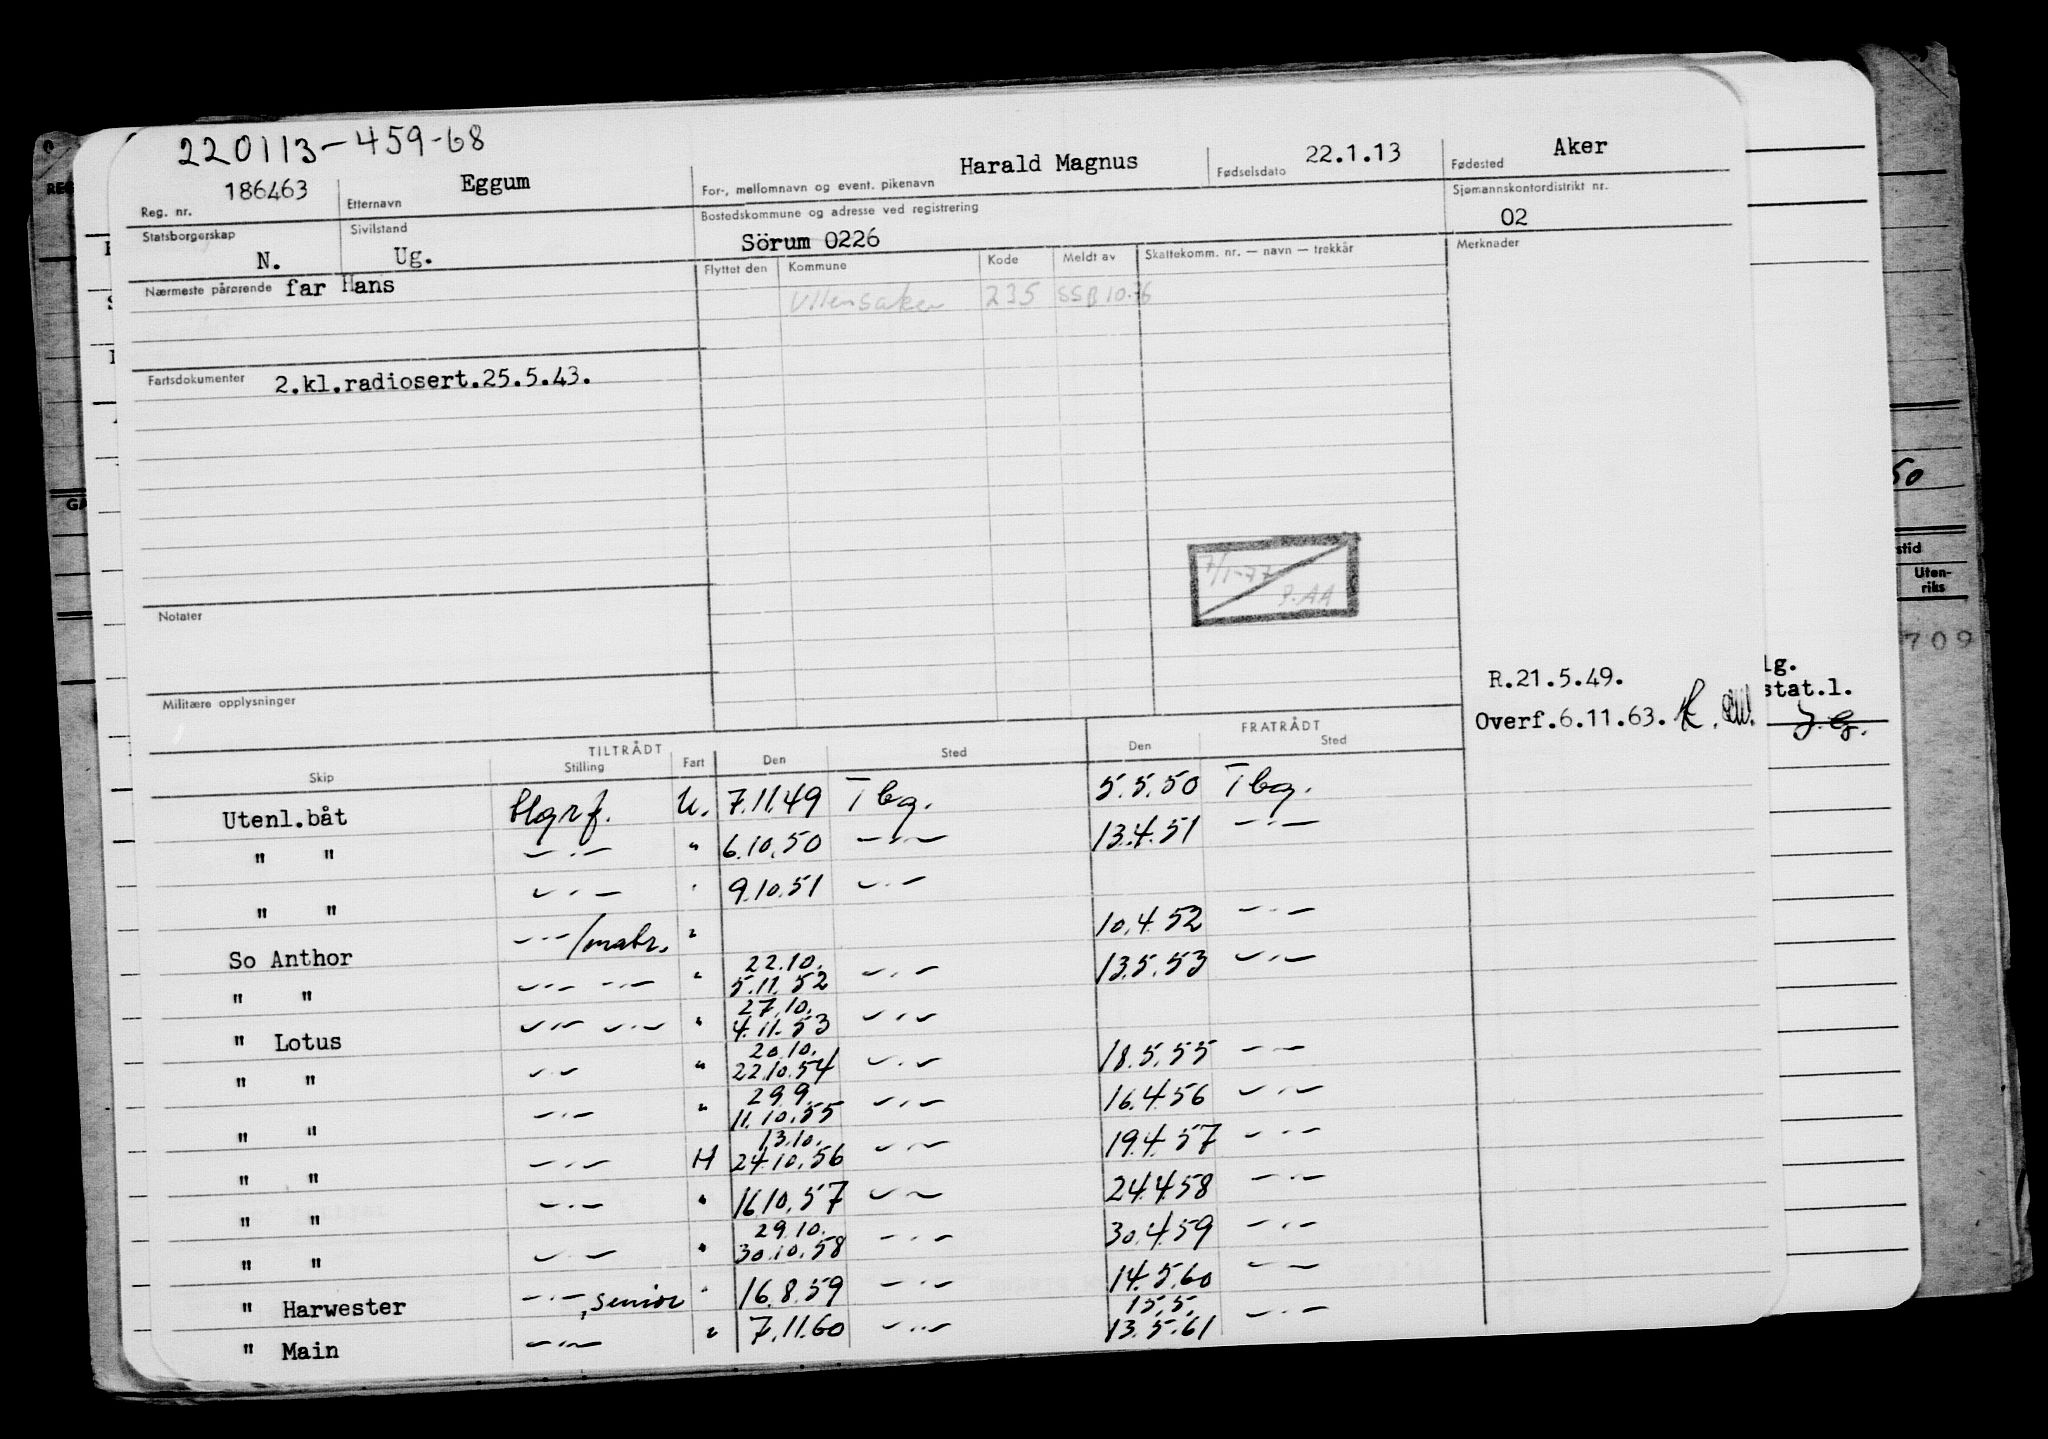 220113-459-68
Reg. nr. 186463 Etternavn Eggum For-, mellomnavn og event. pikenavn Harald Magnus Fødselsdato 22.1.13 Fødested Aker
Statsborgerskap N. Sivilstand Ug. Bostedskommune og adresse ved registrering Sörum 0226 Sjømannskontordistrikt nr. 02
Nærmeste pårørende far Hans Flyttet den Kommune Kode Meldt av Skattekomm. nr. — navn — trekkår Merknader
Ullensaker 235 SSB 10.76
Fartsdokumenter 2.kl.radiosert.25.5.43.
7/1-77
P.AA
Notater
Militære opplysninger
R.21.5.49.
Overf.6.11.63.
TILTRÅDT FRATRÅDT
Skip Stilling Fart Den Sted Den Sted
Utenl.båt U. 7.11.49 Tbg. 5.5.50 Tbg.
" " —·— " 6.10.50 —·— 13.4.51 —·—
" " —·— " 9.10.51 —·—
So Anthor —·—/matr. " 10.4.52 —·—
" " —·— —·— " 22.10. 5.11.52 —·— 13.5.53 —·—
" Lotus —·— —·— " 27.10. 4.11.53 —·—
" " —·— " 20.10. 22.10.54 —·— 18.5.55 —·—
" " —·— " 29.9. 11.10.55 —·— 16.4.56 —·—
" " —·— H 13.10. 24.10.56 —·— 19.4.57 —·—
" " —·— " 16.10.57 —·— 24.4.58 —·—
" " —·— " 29.10. 30.10.58 —·— 30.4.59 —·—
" Harwester —·—, senior " 16.8.59 —·— 14.5.60 —·—
" Main —·— " 7.11.60 —·— 15.5. 13.5.61 —·—
lg.
stat.l.
50
stid
Uten-
riks
709